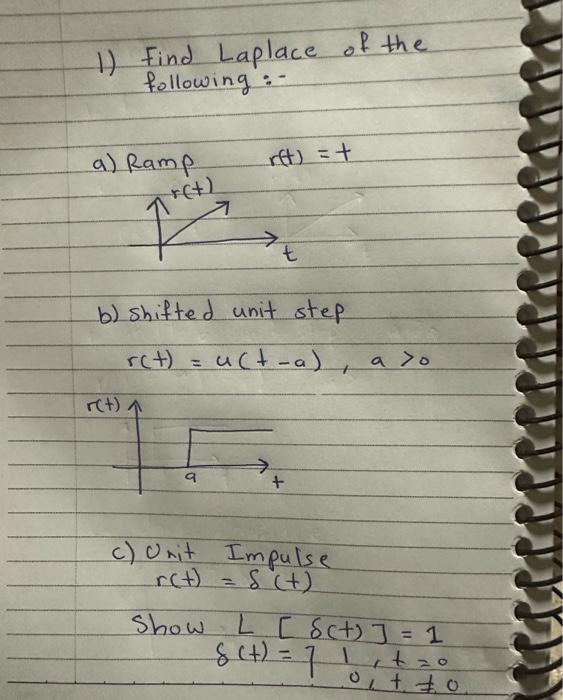 1) Find Laplace of the
following :-
a) Ramp r(t) = t
r(t)
t
b) shifted unit step
r(t) = u(t-a), a >0
r(t)
a
t
c) Unit Impulse
r(t) = δ(t)
Show L [δ(t)] = 1
δ(t) = { 1, t=0
0, t≠0